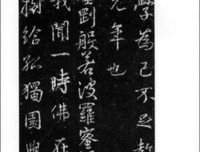 學為己不足
元年也
剛般若波羅蜜
我聞一時佛在
樹給孤獨園